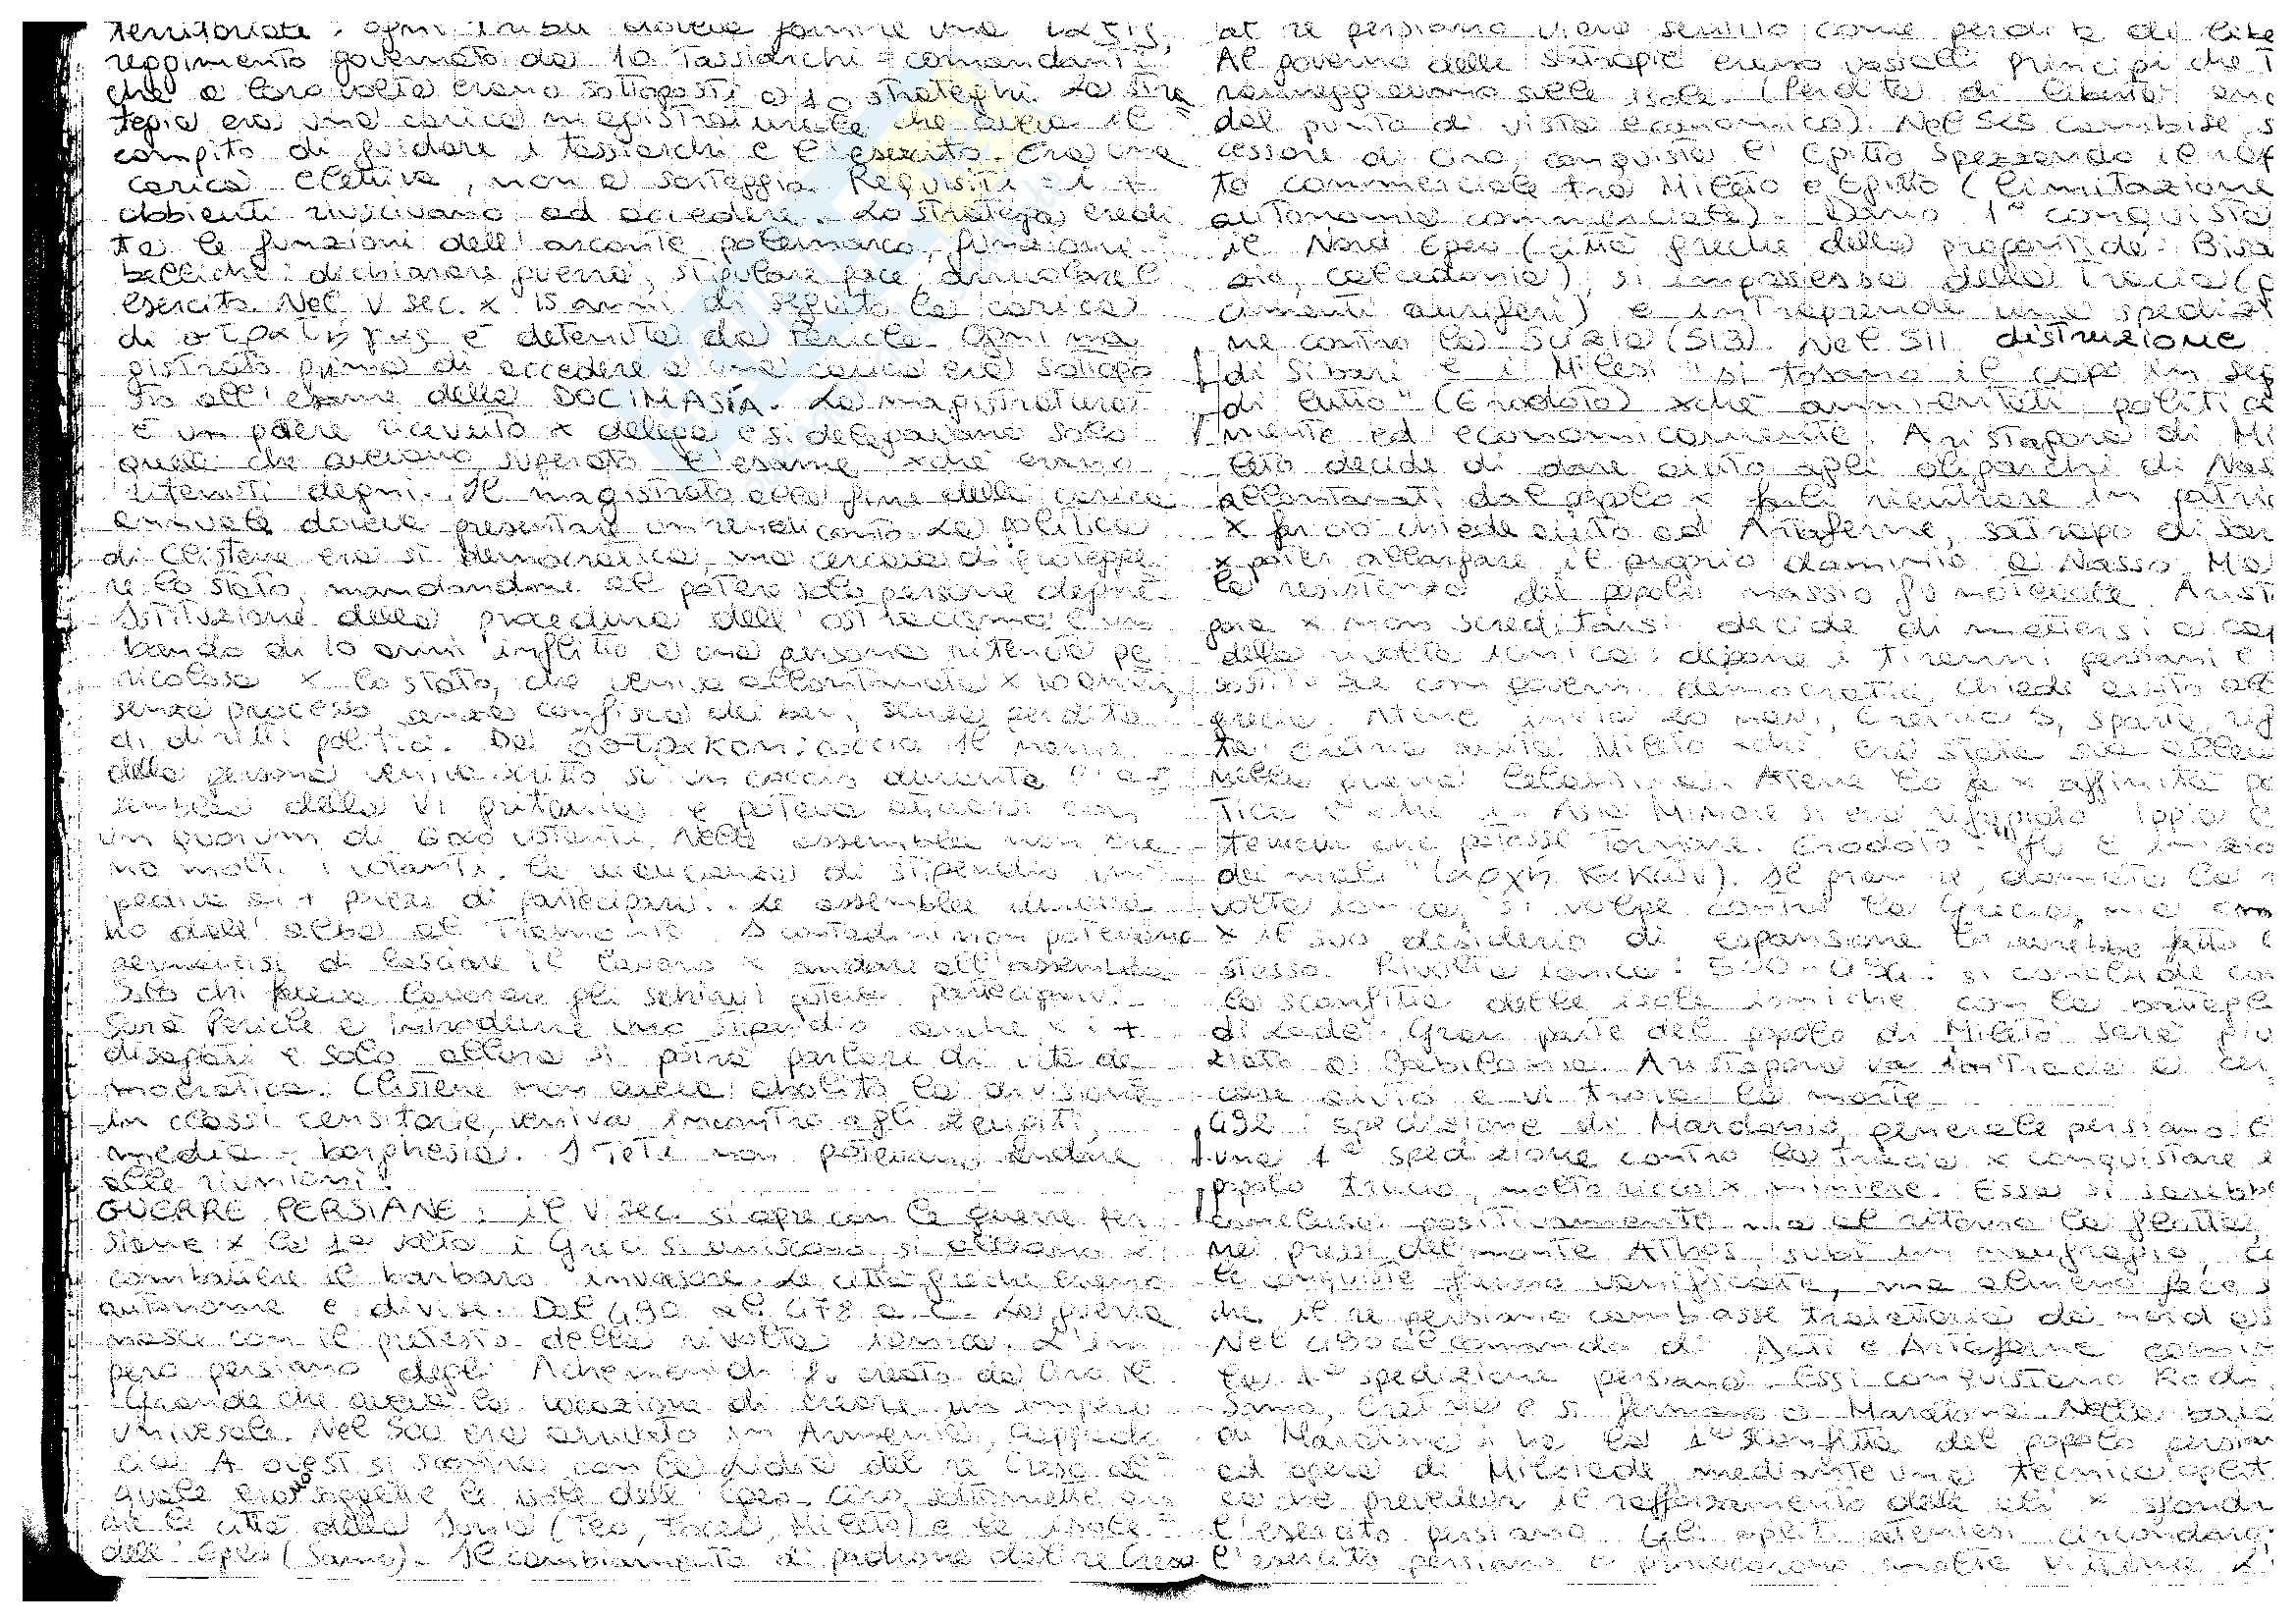 territoriale: ogni tribù doveva fornire una
reggimento governato da 10 tassiarchi = comandanti
che a loro volta erano sottoposti a 10 strateghi. La stra
tegia era una carica magistraturale che aveva il
compito di guidare i tassiarchi e l'esercito. Era una
carica elettiva, non a sorteggio. Requisiti = i +
abbienti riuscivano ad accedere. Lo stratega eredi
ta le funzioni dell'arconte polemarco, funzioni
belliche: dichiarare guerra, stipulare pace, arruolare l'
esercito. Nel V sec. x 15 anni di seguito la carica
di è detenuta da Pericle. Ogni ma
gistrato prima di accedere a una carica era sottopo
sto all'esame della DOCIMASÍA. La magistratura
è un potere ricevuto x delega e si delegavano solo
quelli che avevano superato l'esame xchè erano
ritenuti degni. Il magistrato alla fine della carica
annuale doveva presentare un rendiconto. La politica
di Clistene era sì democratica, ma cercava di protegge
re lo stato, mandandone al potere solo persone degne.
Istituzione della procedura dell'ostracismo: è un
bando di 10 anni inflitto a una persona ritenuta pe
ricolosa x lo stato, che veniva allontanata x 10 anni,
senza processo, senza confisca dei beni, senza perdita
di diritti politici. Da coccio. Il nome
della persona veniva scritto su un coccio durante l'as
semblea della VI pritania e poteva attuarsi con
un quorum di 6000 votanti. Nelle assemblee non era
no molti i votanti. La mancanza di stipendio im
pediva ai + poveri di partecipare. Le assemblee
no dall'alba al tramonto. I contadini non potevano
permettersi di lasciare il lavoro x andare all'assemblea
Solo chi faceva lavorare gli schiavi poteva partecipare.
Sarà Pericle a introdurre uno stipendio anche x i +
disagiati e solo allora si potrà parlare di vita de
mocratica. Clistene non aveva abolito la divisione
in classi censitarie, veniva incontro agli zeugiti,
media borghesia. I Teti non potevano andare
alle riunioni.
GUERRE PERSIANE: il V sec. si apre con le guerre per
siane x la 1ª volta i Greci si uniscono, si alleano x
combattere il barbaro invasore. Le città greche erano
autonome e divise. Dal 490 al 478 a.C. La guerra
nasce con il pretesto della rivolta ionica. L'im
pero persiano degli Achemenidi fu creato da Ciro il
Grande che aveva la vocazione di creare un impero
universale. Nel 500 era arrivato in Armenia, Cappado
cia. A ovest si scontra con la Lidia del re Creso al
quale erano soggette le isole dell'Egeo. Ciro sottomette an
che le città della Ionia (Teo, Focea, Mileto) e le isole
dell'Egeo (Samo). Il cambiamento di padrone dal re Creso
al re persiano viene sentito come perdita di libe
Al governo delle satrapie erano vassalli principi che t
raneggiavano sulle isole. (Perdita di libertà anc
dal punto di vista economico). Nel 525 Cambise, s
cessore di Ciro, conquista l'Egitto spezzando il rap
to commerciale tra Mileto e Egitto (limitazione
autonomia commerciale). Dario 1° conquista
il Nord Egeo (città greche della propontide: Bisa
zio, Calcedonia), si impossessa della Tracia (g
cimenti auriferi) e intraprende una spediz
ne contro la Scizia (513). Nel 511 distruzione
di Sibari e i Milesi "si tosano il capo in seg
di lutto" (Erodoto) xchè annientati politica
mente ed economicamente. Aristagora di Mi
leto decide di dare aiuto agli oligarchi di Nas
allontanati dal popolo x farli rientrare in patria
x far ciò chiede aiuto ad Artaferne, satrapo di Sar
x poter allargare il proprio dominio a Nasso. Ma
la resistenza del popolo nassio fu notevole. Arista
gora x non screditarsi decide di mettersi a cap
della rivolta ionica: depone i tiranni persiani e
sostituisce con governi democratici, chiede aiuto all
grecia. Atene invia 20 navi, Eretria 5, Sparta rif
ta. Eretria aiuta Mileto xchè era stata sua allea
nella guerra lelantina. Atene lo fa x affinità po
tica e xchè in Asia Minore si era rifugiato Ippia e
temeva che potesse tornare. Erodoto: "fu l'inizio
dei mali" (ἀρχὴ κακῶν). Il gran re, domata la r
volta ionica, si volge contro la Grecia, ma
x il suo desiderio di espansione lo avrebbe fatto
stesso. Rivolta ionica: 500-494: si conclude con
la sconfitta delle isole ioniche con la battagli
di Lade. Gran parte del popolo di Mileto sarà
ziato a Babilonia. Aristagora va in Tracia a cer
care aiuto e vi trova la morte.
492: spedizione di Mardonio, generale persiano. È
una 1ª spedizione contro la Tracia x conquistare il
popolo tracio, molto ricco x miniere. Essa si sarebbe
conclusa positivamente ma al ritorno la flotta,
nei pressi del monte Athos, subì un naufragio,
le conquiste furono vanificate, ma almeno fece s
che il re persiano cambiasse traiettoria da nord
Nel 490 al comando di Dati e Artaferne comin
la 1ª spedizione persiana. Essi conquistano Rodi,
Samo, Eretria e si fermano a Maratona. Nella baia
di Maratona si ha la 1ª sconfitta del popolo persian
ad opera di Milziade, mediante una tecnica oplit
ca che prevedeva il rafforzamento delle ali x sfonda
l'esercito persiano. Gli opliti ateniesi circondaro
l'esercito persiano e provocarono molte vittime x